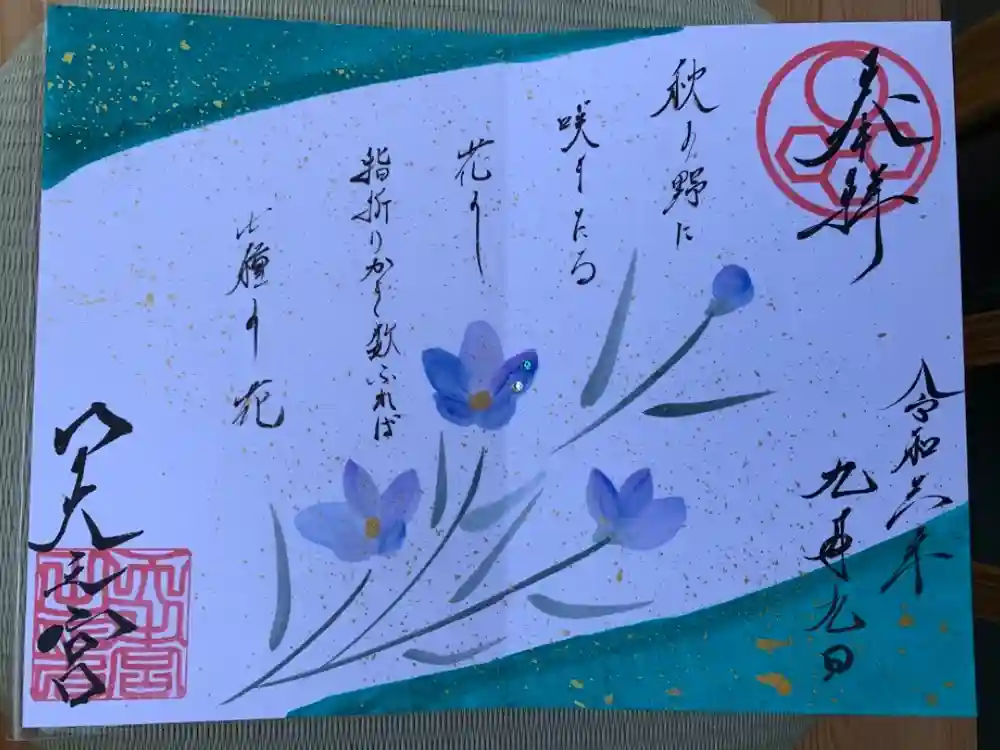 奉拝
令和六年
九月九日
秋の野に
咲きたる
花を
指折りかき数ふれば
七種の花
天王宮